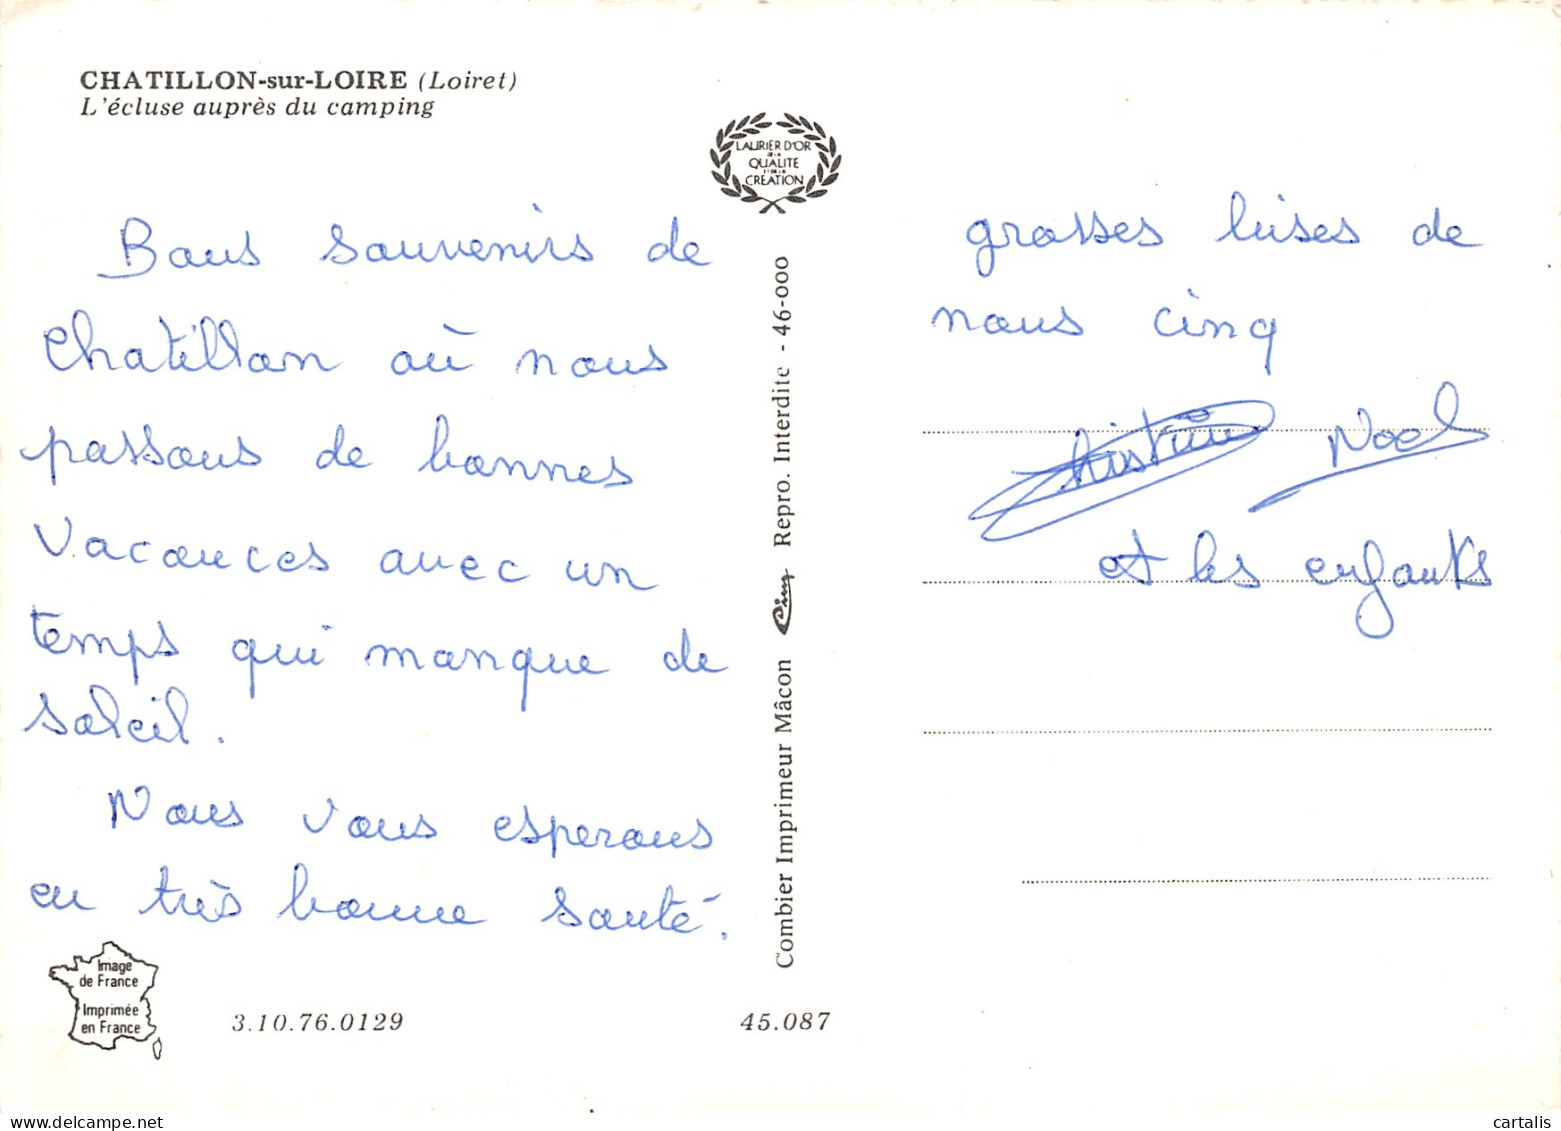 CHATILLON-sur-LOIRE (Loiret)
L'écluse auprès du camping
LAURIER D'OR
DE LA
QUALITE
ET DE LA
CREATION
Bons souvenirs de
Chatillon où nous
passons de bonnes
vacances avec un
temps qui manque de
soleil.
Nous vous esperons
en très bonne santé.
Image
de France
Imprimée
en France
3.10.76.0129
45.087
Combier Imprimeur Mâcon Cim Repro. Interdite - 46-000
grosses bises de
nous cinq
Christine Noel
et les enfants
cartalis